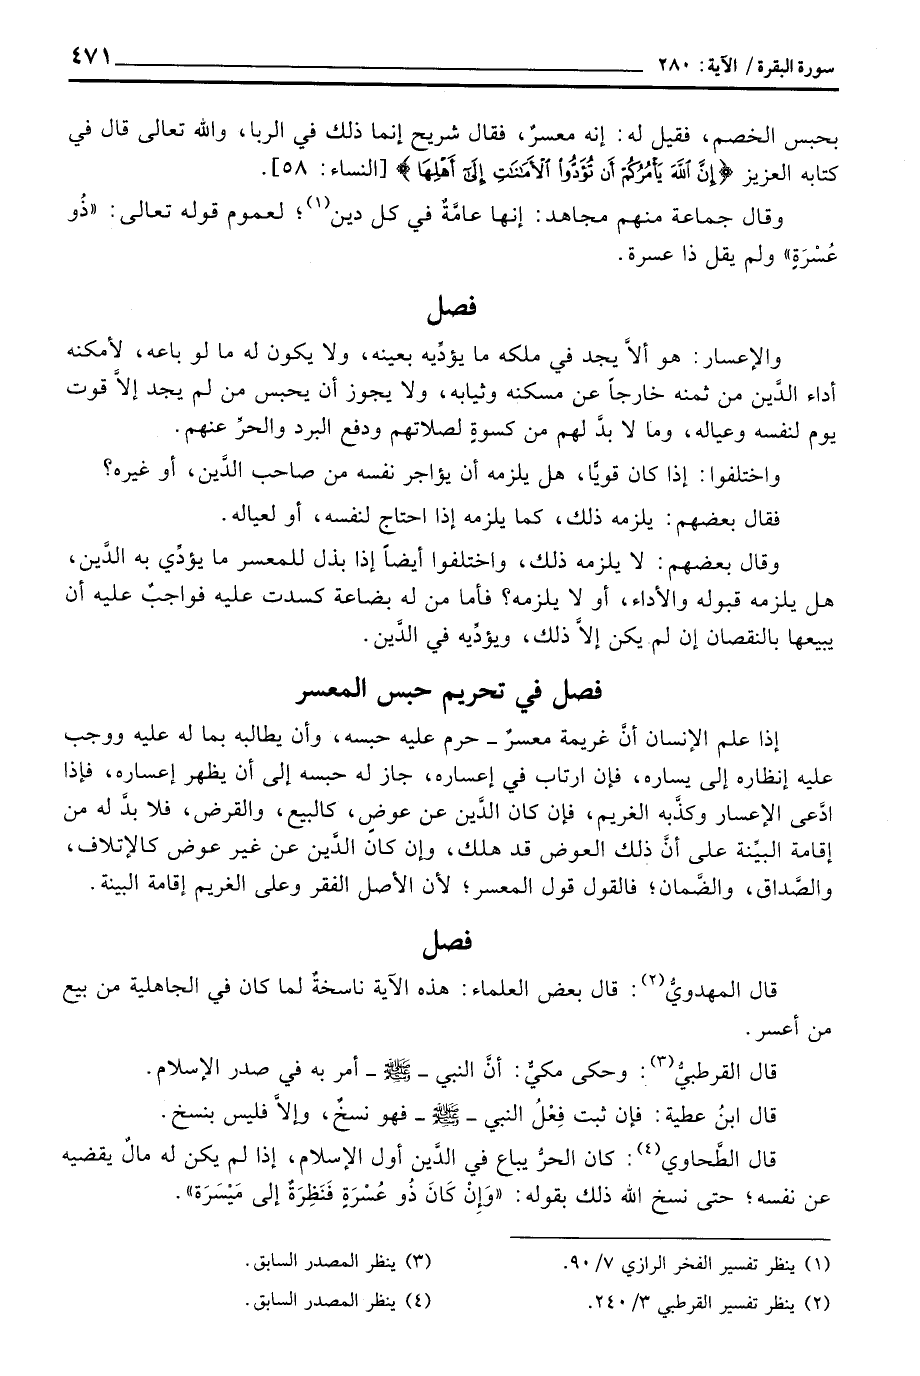 سورة البقرة/ الآية: ٢٨٠ ٤٧١
بحبس الخصم، فقيل له: إنه معسرٌ، فقال شريح إنما ذلك في الربا، والله تعالى قال في
كتابه العزيز ﴿إِنَّ اللَّهَ يَأْمُرُكُمْ أَن تُؤَدُّوا الْأَمَانَاتِ إِلَىٰ أَهْلِهَا﴾ [النساء: ٥٨].
وقال جماعة منهم مجاهد: إنها عامَّةٌ في كل دين(١)؛ لعموم قوله تعالى: «ذُو
عُسْرَةٍ» ولم يقل ذا عسرة.
فصل
والإعسار: هو ألاَّ يجد في ملكه ما يؤدِّيه بعينه، ولا يكون له ما لو باعه، لأمكنه
أداء الدَّين من ثمنه خارجاً عن مسكنه وثيابه، ولا يجوز أن يحبس من لم يجد إلاَّ قوت
يوم لنفسه وعياله، وما لا بدَّ لهم من كسوةٍ لصلاتهم ودفع البرد والحرِّ عنهم.
واختلفوا: إذا كان قويًّا، هل يلزمه أن يؤاجر نفسه من صاحب الدَّين، أو غيره؟
فقال بعضهم: يلزمه ذلك، كما يلزمه إذا احتاج لنفسه، أو لعياله.
وقال بعضهم: لا يلزمه ذلك، واختلفوا أيضاً إذا بذل للمعسر ما يؤدِّي به الدَّين،
هل يلزمه قبوله والأداء، أو لا يلزمه؟ فأما من له بضاعة كسدت عليه فواجبٌ عليه أن
يبيعها بالنقصان إن لم يكن إلاَّ ذلك، ويؤدِّيه في الدَّين.
فصل في تحريم حبس المعسر
إذا علم الإنسان أنَّ غريمة معسرٌ ـ حرم عليه حبسه، وأن يطالبه بما له عليه ووجب
عليه إنظاره إلى يساره، فإن ارتاب في إعساره، جاز له حبسه إلى أن يظهر إعساره، فإذا
ادَّعى الإعسار وكذَّبه الغريم، فإن كان الدَّين عن عوضٍ، كالبيع، والقرض، فلا بدَّ له من
إقامة البيِّنة على أنَّ ذلك العوض قد هلك، وإن كان الدَّين عن غير عوض كالإتلاف،
والصَّداق، والضَّمان؛ فالقول قول المعسر؛ لأن الأصل الفقر وعلى الغريم إقامة البينة.
فصل
قال المهدويُّ(٢): قال بعض العلماء: هذه الآية ناسخةٌ لما كان في الجاهلية من بيع
من أعسر.
قال القرطبيُّ(٣): وحكى مكيٌّ: أنَّ النبي ـ ﷺ ـ أمر به في صدر الإسلام.
قال ابنُ عطية: فإن ثبت فِعْلُ النبي ـ ﷺ ـ فهو نسخٌ، وإلاَّ فليس بنسخ.
قال الطَّحاوي(٤): كان الحرُّ يباع في الدَّين أول الإسلام، إذا لم يكن له مالٌ يقضيه
عن نفسه؛ حتى نسخ الله ذلك بقوله: «وَإِنْ كَانَ ذُو عُسْرَةٍ فَنَظِرَةٌ إلى مَيْسَرَة».
(١) ينظر تفسير الفخر الرازي ٧/ ٩٠.
(٢) ينظر تفسير القرطبي ٣/ ٢٤٠.
(٣) ينظر المصدر السابق.
(٤) ينظر المصدر السابق.